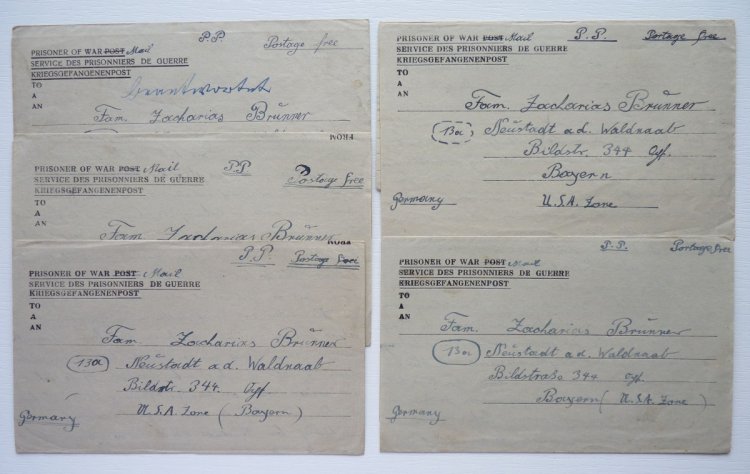 P.P. Postage free
PRISONER OF WAR POST Mail
SERVICE DES PRISONNIERS DE GUERRE
KRIEGSGEFANGENENPOST
TO
A
AN
beantwortet
Fam. Zacharias Brünner
FROM
PRISONER OF WAR POST Mail P.P.
SERVICE DES PRISONNIERS DE GUERRE Postage free
KRIEGSGEFANGENENPOST
TO
A
AN
Fam. Zacharias Brünner
FROM
P.P. Postage free
PRISONER OF WAR POST Mail
SERVICE DES PRISONNIERS DE GUERRE
KRIEGSGEFANGENENPOST
TO
A
AN
Fam. Zacharias Brünner
13a Neustadt a.d. Waldnaab
Bildstr. 344 Opf.
Germany U.S.A. Zone (Bayern)
PRISONER OF WAR POST Mail P.P. Postage free
SERVICE DES PRISONNIERS DE GUERRE
KRIEGSGEFANGENENPOST
TO
A
AN
Fam. Zacharias Brünner
13a Neustadt a.d. Waldnaab
Bildstr. 344 Opf.
Bayern
Germany U.S.A. Zone
P.P. Postage free
PRISONER OF WAR POST Mail
SERVICE DES PRISONNIERS DE GUERRE
KRIEGSGEFANGENENPOST
TO
A
AN
Fam. Zacharias Brünner
13a Neustadt a.d. Waldnaab
Bildstraße 344 Opf.
Germany Bayern (U.S.A. Zone)